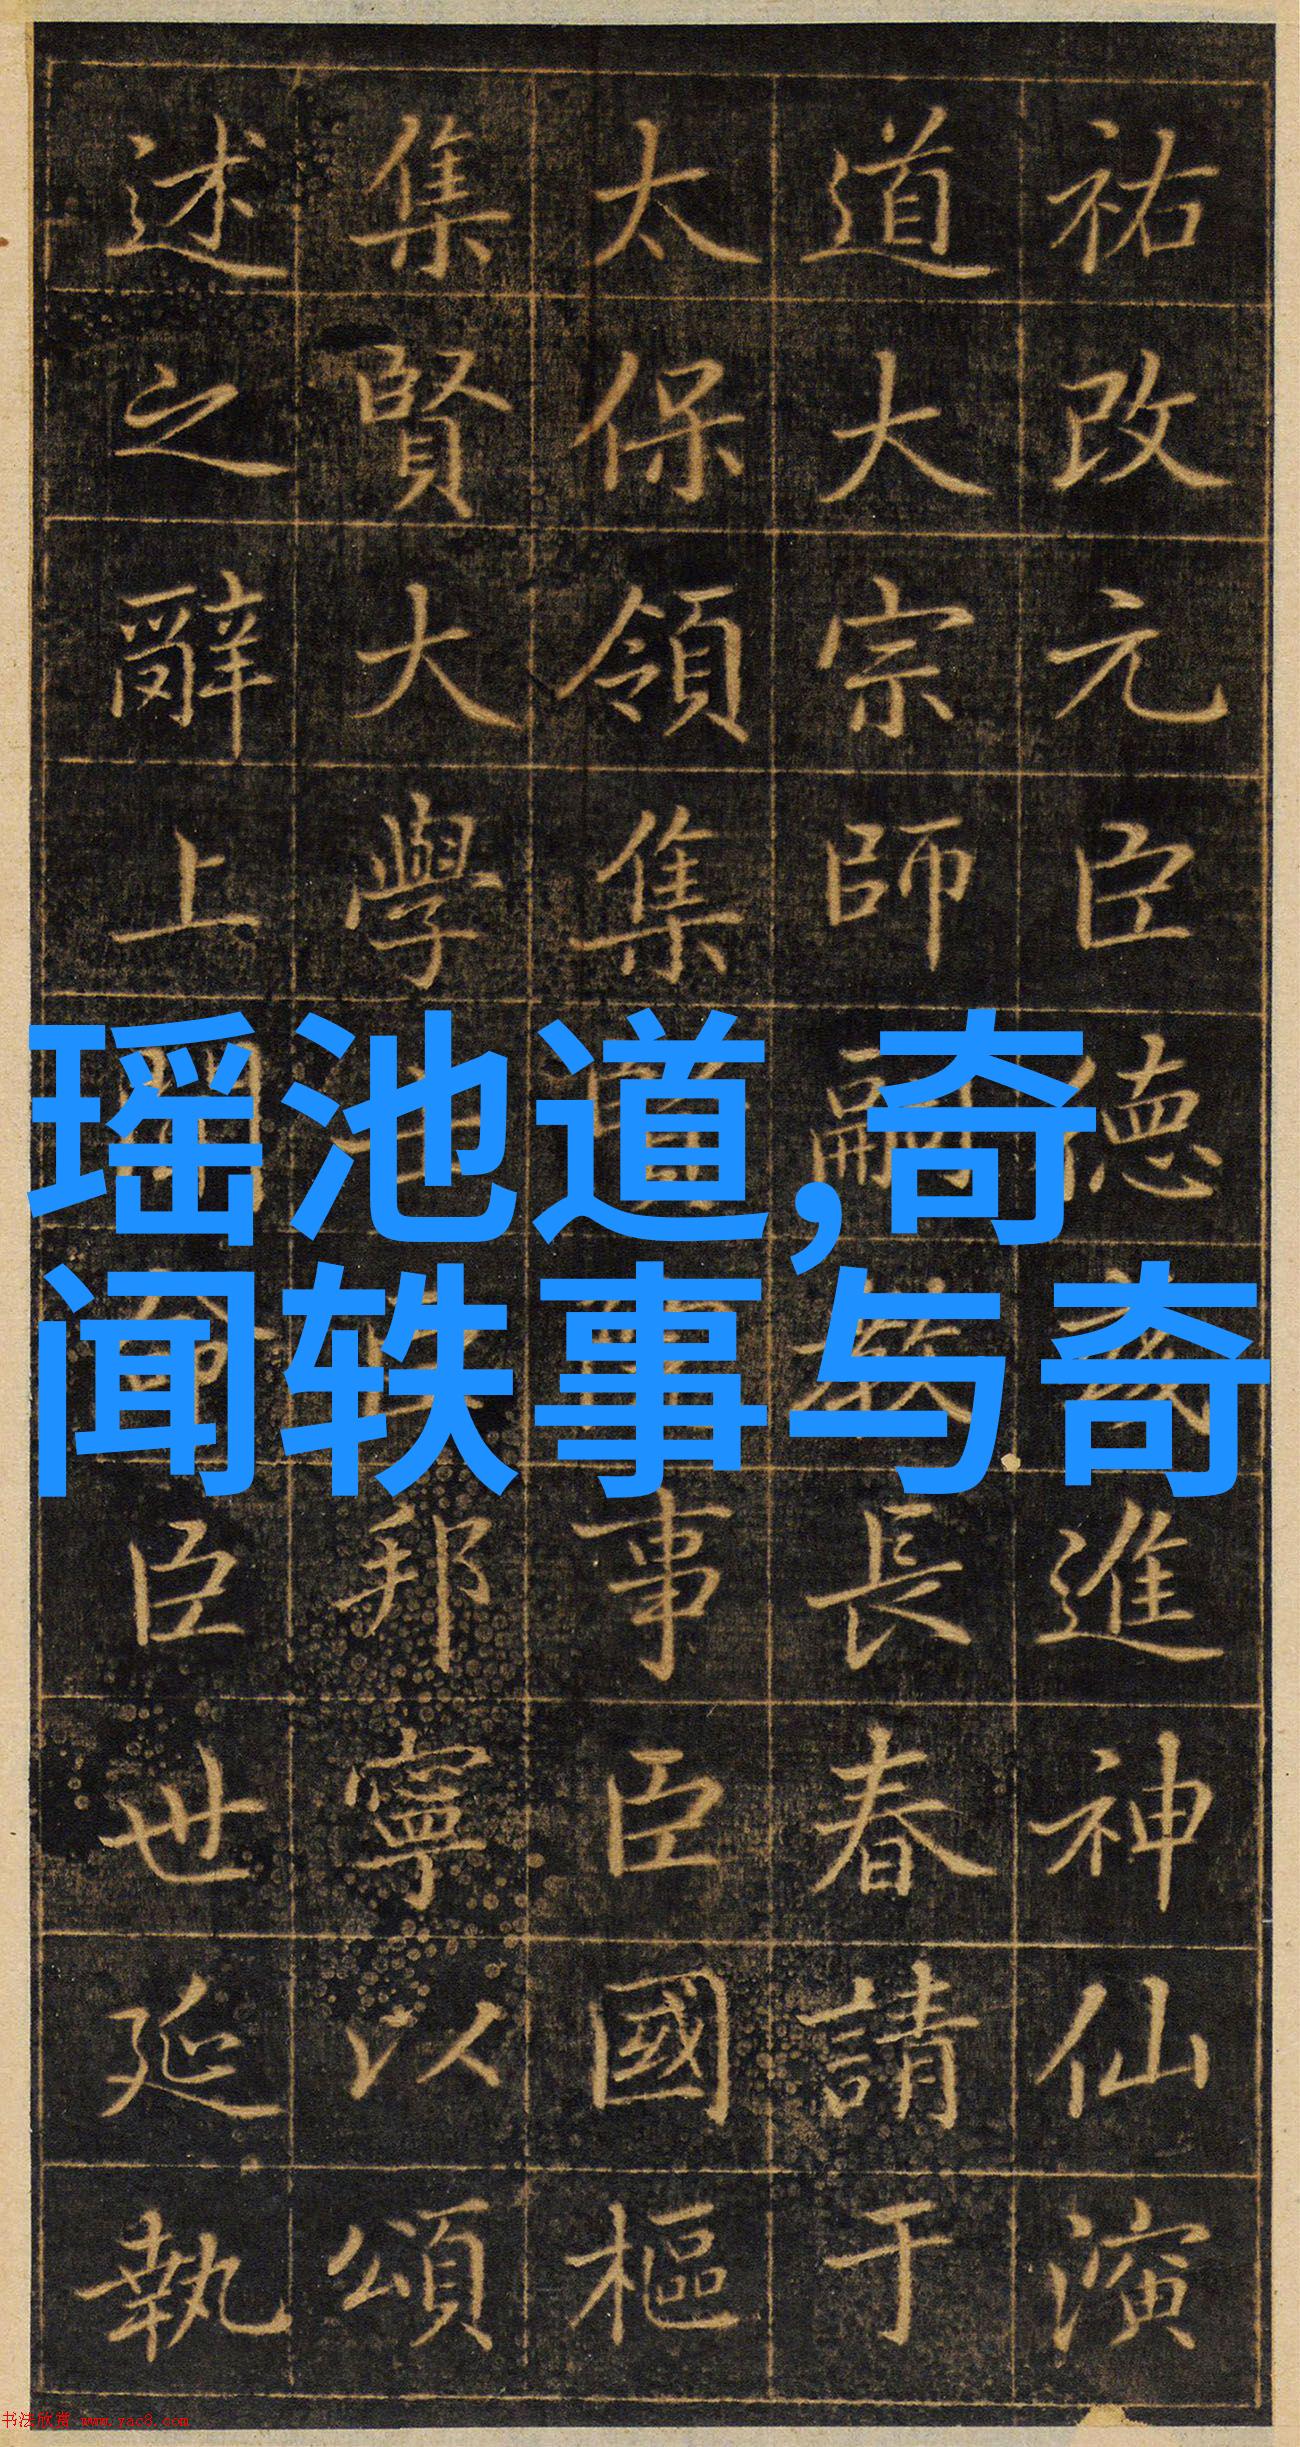 祐改元臣德進神仙演
道大宗師嗣教長春請于
太保領集事臣國樞
集賢大學邦寧以頌
述之辭上聞命臣世延執
瑶池道,奇
闻轶事与奇
书法欣赏 www.yac8.com